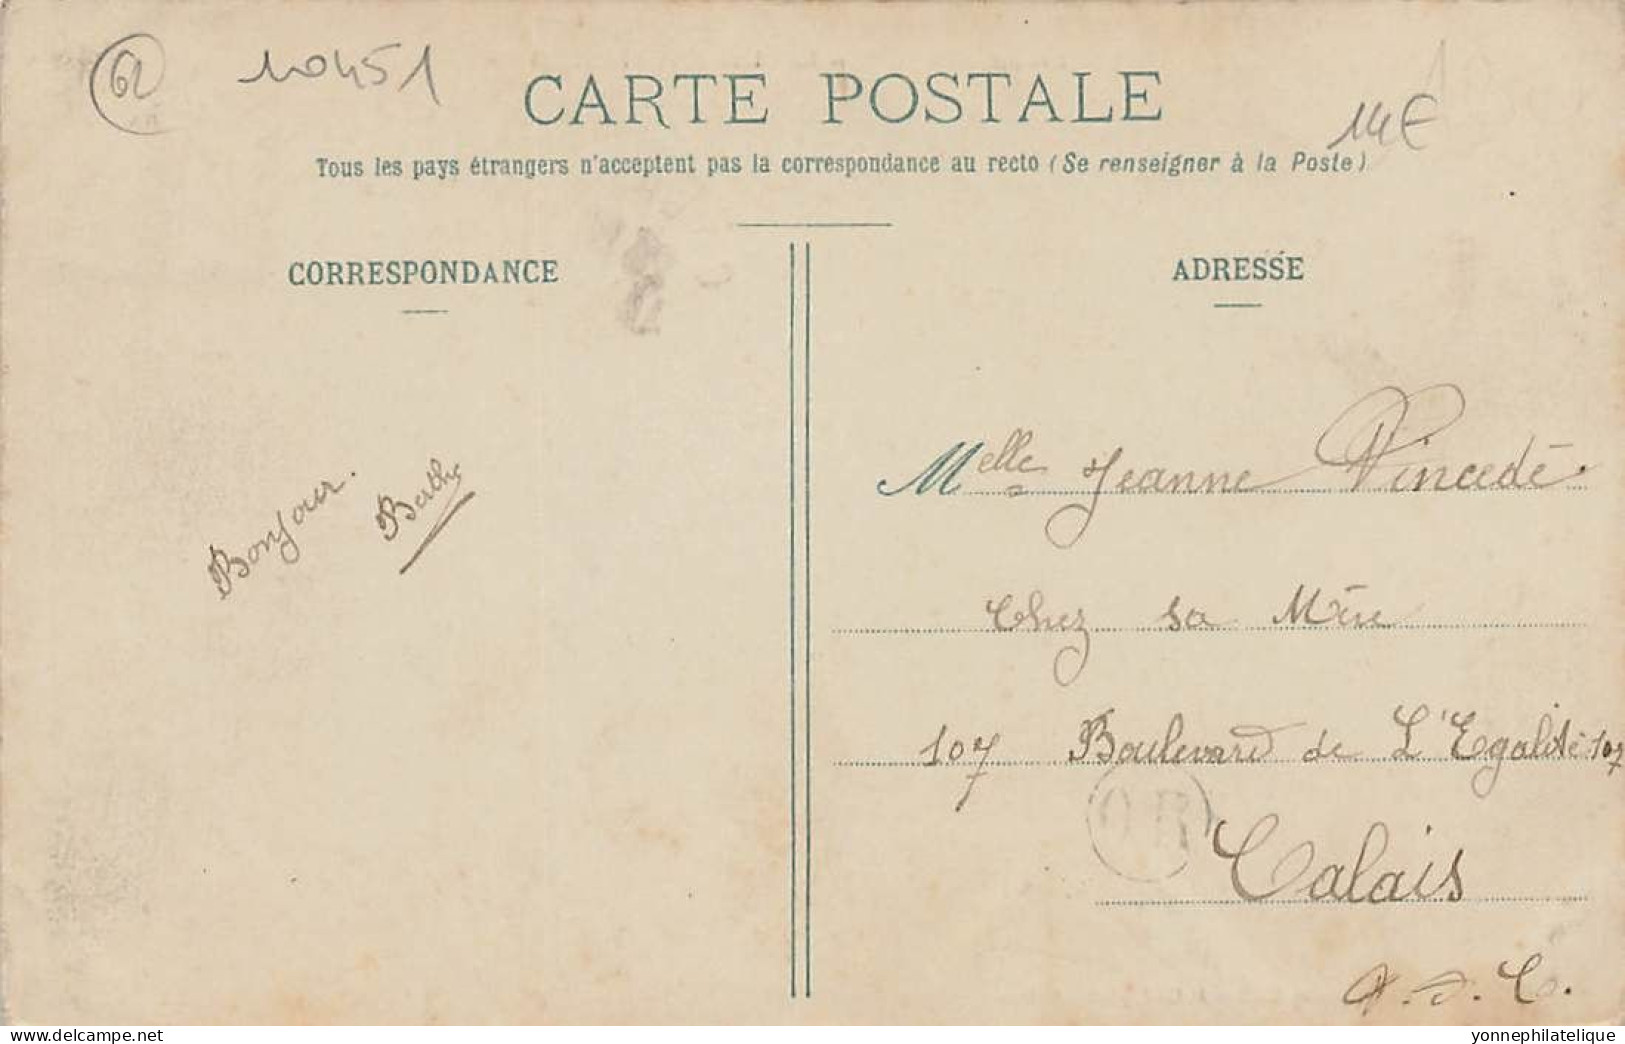 62
10451
CARTE POSTALE
14€
Tous les pays étrangers n'acceptent pas la correspondance au recto (Se renseigner à la Poste)
CORRESPONDANCE
ADRESSE
Bonjour.
Berthe
Melle Jeanne Vincedé.
Chez sa Mère
107 Boulevard de L'Egalité 107
OR
Calais
P. d. C.
yonnephilatelique